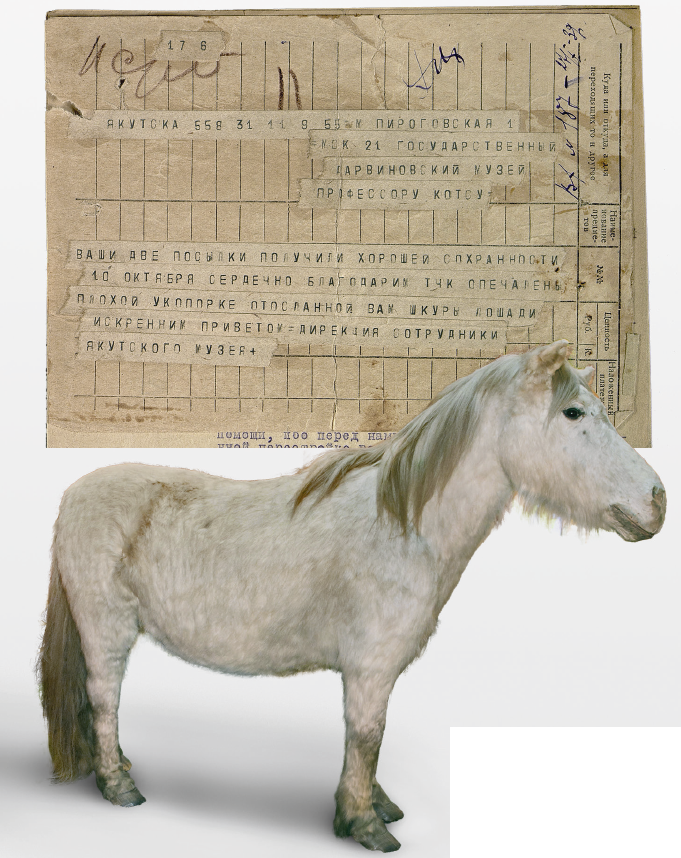 17 6
ЯКУТСКА 558 31 11 9 55=М ПИРОГОВСКАЯ 1
МСК 21 ГОСУДАРСТВЕННЫЙ
ДАРВИНОВСКИЙ МУЗЕЙ
ПРОФЕССОРУ КОТСУ=
ВАШИ ДВЕ ПОСЫЛКИ ПОЛУЧИЛИ ХОРОШЕЙ СОХРАННОСТИ
10 ОКТЯБРЯ СЕРДЕЧНО БЛАГОДАРИМ ТЧК ОПЕЧАЛЕНЫ
ПЛОХОЙ УКОПОРКЕ ОТОСЛАННОЙ ВАМ ШКУРЫ ЛОШАДИ
ИСКРЕННИМ ПРИВЕТОМ=ДИРЕКЦИЯ СОТРУДНИКИ
ЯКУТСКОГО МУЗЕЯ+
помощи, поо перед нам
Куда или откуда, а для
переходящих то и другое
Наиме-
нование
№№
Ценность
Руб.
Наложенный